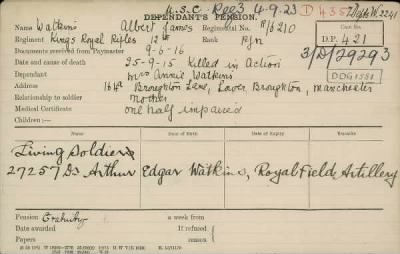 U.S.C. Rec3 4.9.23 D 435
DEPENDANT'S PENSION.
Name Watkins Albert James Regimental No. R/6210
Regiment Kings Royal Rifles 12th Rank Rfn
Case No.
D.P. 421
Documents received from Paymaster 9-6-16
3/D/29293
Date and cause of death 25-9-15 Killed in Action
Dependant Mrs Annie Watkins
DOG1551
Address 164 Broughton Lane, Lower Broughton, Manchester
Relationship to soldier Mother
Medical Certificate one half impaired
Children:—
Name Date of Birth Date of Expiry Remarks
Living Soldier
27257 Dr Arthur Edgar Watkins, Royal Field Artillery
Pension Gratuity a week from
Date awarded If refused
Papers reason